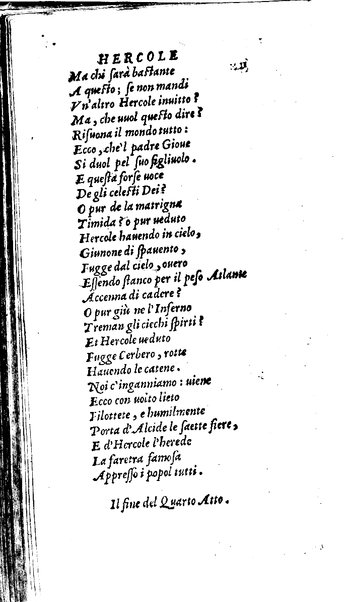 HERCOLE
Ma chi sarà bastante
A questo; se non mandi
Vn'altro Hercole inuitto?
Ma, che uuol questo dire?
Risuona il mondo tutto:
Ecco, che'l padre Gioue
Si duol pel suo figliuolo.
E questa forse uoce
De gli celesti Dei?
O pur de la matrigna
Timida? o pur ueduto
Hercole hauendo in cielo,
Giunone di spauento,
Fugge dal cielo, ouero
Essendo stanco per il peso Atlante
Accenna di cadere?
O pur giù ne l'Inferno
Treman gli ciechi spirti?
Et Hercole ueduto
Fugge Cerbero, rotte
Hauendo le catene.
Noi c'inganniamo: uiene
Ecco con uolto lieto
Filottete, e humilmente
Porta d'Alcide le saette fiere,
E d'Hercole l'herede
La faretra famosa
Appresso i popol tutti.
Il fine del Quarto Atto.